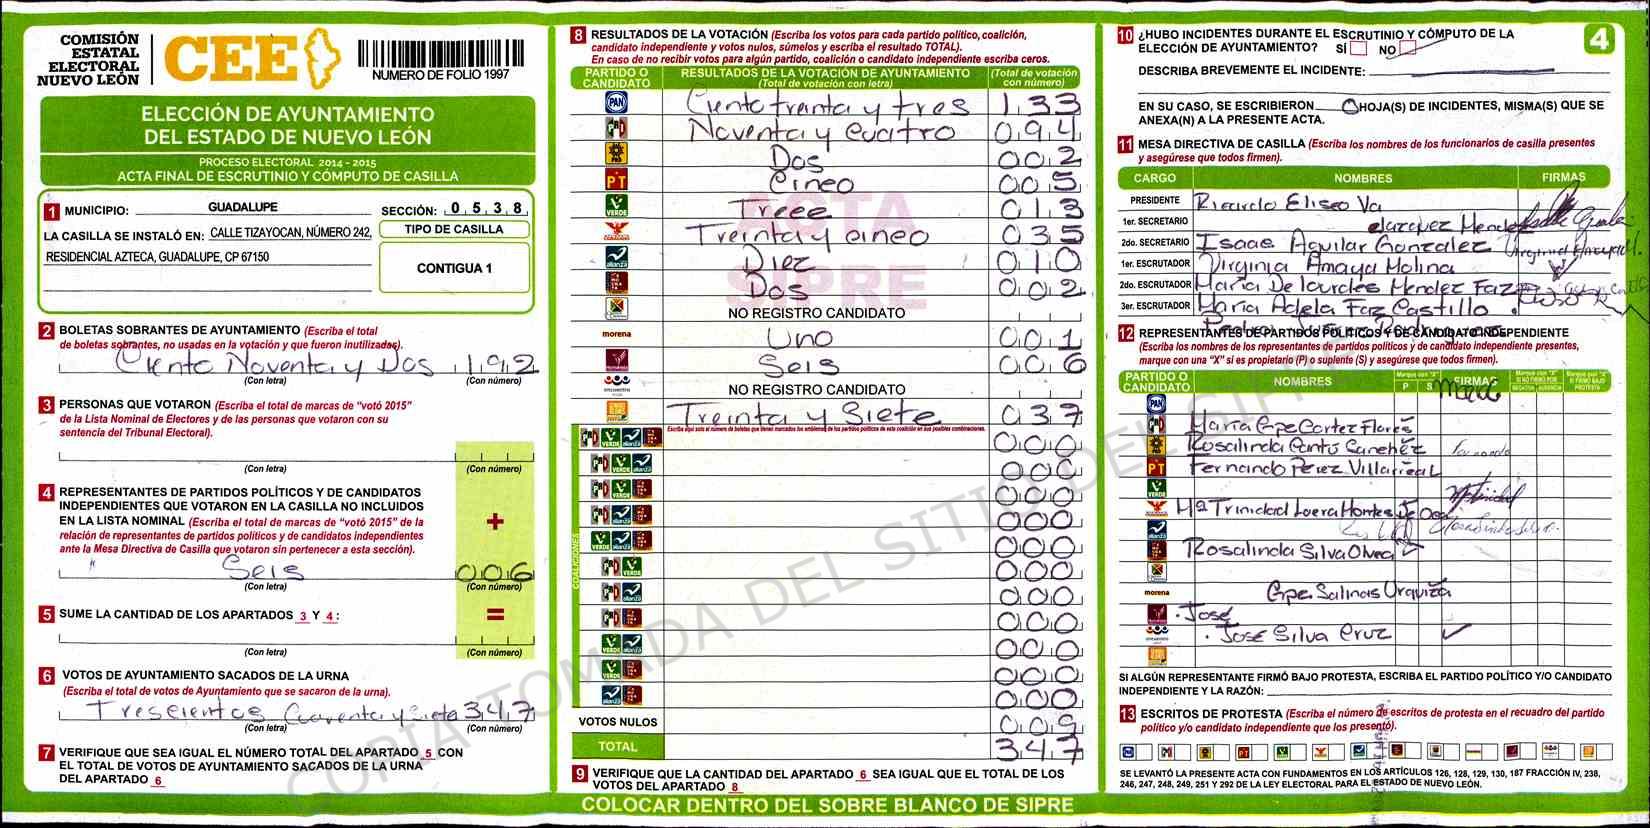 COMISIÓN
ESTATAL
ELECTORAL
NUEVO LEÓN
CEE
NUMERO DE FOLIO 1997
ELECCIÓN DE AYUNTAMIENTO
DEL ESTADO DE NUEVO LEÓN
PROCESO ELECTORAL 2014 - 2015
ACTA FINAL DE ESCRUTINIO Y CÓMPUTO DE CASILLA
1 MUNICIPIO: GUADALUPE SECCIÓN: 0 5 3 8
LA CASILLA SE INSTALÓ EN: CALLE TIZAYOCAN, NÚMERO 242,
RESIDENCIAL AZTECA, GUADALUPE, CP 67150
TIPO DE CASILLA
CONTIGUA 1
2 BOLETAS SOBRANTES DE AYUNTAMIENTO (Escriba el total
de boletas sobrantes, no usadas en la votación y que fueron inutilizadas).
Ciento Noventa y Dos 192
(Con letra) (Con número)
3 PERSONAS QUE VOTARON (Escriba el total de marcas de "votó 2015"
de la Lista Nominal de Electores y de las personas que votaron con su
sentencia del Tribunal Electoral).
(Con letra) (Con número)
4 REPRESENTANTES DE PARTIDOS POLÍTICOS Y DE CANDIDATOS
INDEPENDIENTES QUE VOTARON EN LA CASILLA NO INCLUIDOS
EN LA LISTA NOMINAL (Escriba el total de marcas de "votó 2015" de la
relación de representantes de partidos políticos y de candidatos independientes
ante la Mesa Directiva de Casilla que votaron sin pertenecer a esta sección).
+
Seis 006
(Con letra) (Con número)
5 SUME LA CANTIDAD DE LOS APARTADOS 3 Y 4 :
=
(Con letra) (Con número)
6 VOTOS DE AYUNTAMIENTO SACADOS DE LA URNA
(Escriba el total de votos de Ayuntamiento que se sacaron de la urna).
Trescientos Cuarenta y Siete 347
(Con letra) (Con número)
7 VERIFIQUE QUE SEA IGUAL EL NÚMERO TOTAL DEL APARTADO 5 CON
EL TOTAL DE VOTOS DE AYUNTAMIENTO SACADOS DE LA URNA
DEL APARTADO 6
8 RESULTADOS DE LA VOTACIÓN (Escriba los votos para cada partido político, coalición,
candidato independiente y votos nulos, súmelos y escriba el resultado TOTAL).
En caso de no recibir votos para algún partido, coalición o candidato independiente escriba ceros.
PARTIDO O CANDIDATO
RESULTADOS DE LA VOTACIÓN DE AYUNTAMIENTO
(Total de votación con letra)
(Total de votación con número)
PAN Ciento treinta y tres 133
PRD Noventa y Cuatro 094
PRD Dos 002
PT Cinco 005
VERDE Trece 013
Treinta y cinco 035
alianza Diez 010
Dos 002
NO REGISTRO CANDIDATO
morena Uno 001
Seis 006
encuentro NO REGISTRO CANDIDATO
Treinta y Siete 037
Escriba aquí solo el número de boletas que tienen marcados los emblemas de los partidos políticos de esta coalición en sus posibles combinaciones.
COALICIONES
000
000
000
000
000
000
000
000
000
000
000
VOTOS NULOS 009
TOTAL 347
9 VERIFIQUE QUE LA CANTIDAD DEL APARTADO 6 SEA IGUAL QUE EL TOTAL DE LOS
VOTOS DEL APARTADO 8
COLOCAR DENTRO DEL SOBRE BLANCO DE SIPRE
ACTA
SIPRE
COPIA TOMADA DEL SITIO DEL SIPRE
4
10 ¿HUBO INCIDENTES DURANTE EL ESCRUTINIO Y CÓMPUTO DE LA
ELECCIÓN DE AYUNTAMIENTO? SÍ NO
DESCRIBA BREVEMENTE EL INCIDENTE:
EN SU CASO, SE ESCRIBIERON 0 HOJA(S) DE INCIDENTES, MISMA(S) QUE SE
ANEXA(N) A LA PRESENTE ACTA.
11 MESA DIRECTIVA DE CASILLA (Escriba los nombres de los funcionarios de casilla presentes
y asegúrese que todos firmen).
CARGO NOMBRES FIRMAS
PRESIDENTE Ricardo Eliseo Va
1er. SECRETARIO dazquez Mendez
2do. SECRETARIO Isaac Aguilar Gonzalez
1er. ESCRUTADOR Virginia Amaya Molina
2do. ESCRUTADOR Maria De Lourdes Mendez Faz
3er. ESCRUTADOR Maria Adela Faz Castillo
12 REPRESENTANTES DE PARTIDOS POLÍTICOS Y DE CANDIDATO INDEPENDIENTE
(Escriba los nombres de los representantes de partidos políticos y de candidato independiente presentes,
marque con una "X" si es propietario (P) o suplente (S) y asegúrese que todos firmen).
PARTIDO O CANDIDATO NOMBRES P S FIRMAS
PAN
Maria Gpe Cortez Flores
Rosalinda Cantú Sanchez
PT Fernando Perez Villarreal
VERDE
Ma Trinidad Loera Montes
alianza
Rosalinda Silva Olvea
morena Gpe. Salinas Urquiza
José
José Silva Cruz
SI ALGÚN REPRESENTANTE FIRMÓ BAJO PROTESTA, ESCRIBA EL PARTIDO POLÍTICO Y/O CANDIDATO
INDEPENDIENTE Y LA RAZÓN:
13 ESCRITOS DE PROTESTA (Escriba el número de escritos de protesta en el recuadro del partido
político y/o candidato independiente que los presentó).
SE LEVANTÓ LA PRESENTE ACTA CON FUNDAMENTOS EN LOS ARTÍCULOS 126, 128, 129, 130, 187 FRACCIÓN IV, 238,
246, 247, 248, 249, 251 Y 292 DE LA LEY ELECTORAL PARA EL ESTADO DE NUEVO LEÓN.